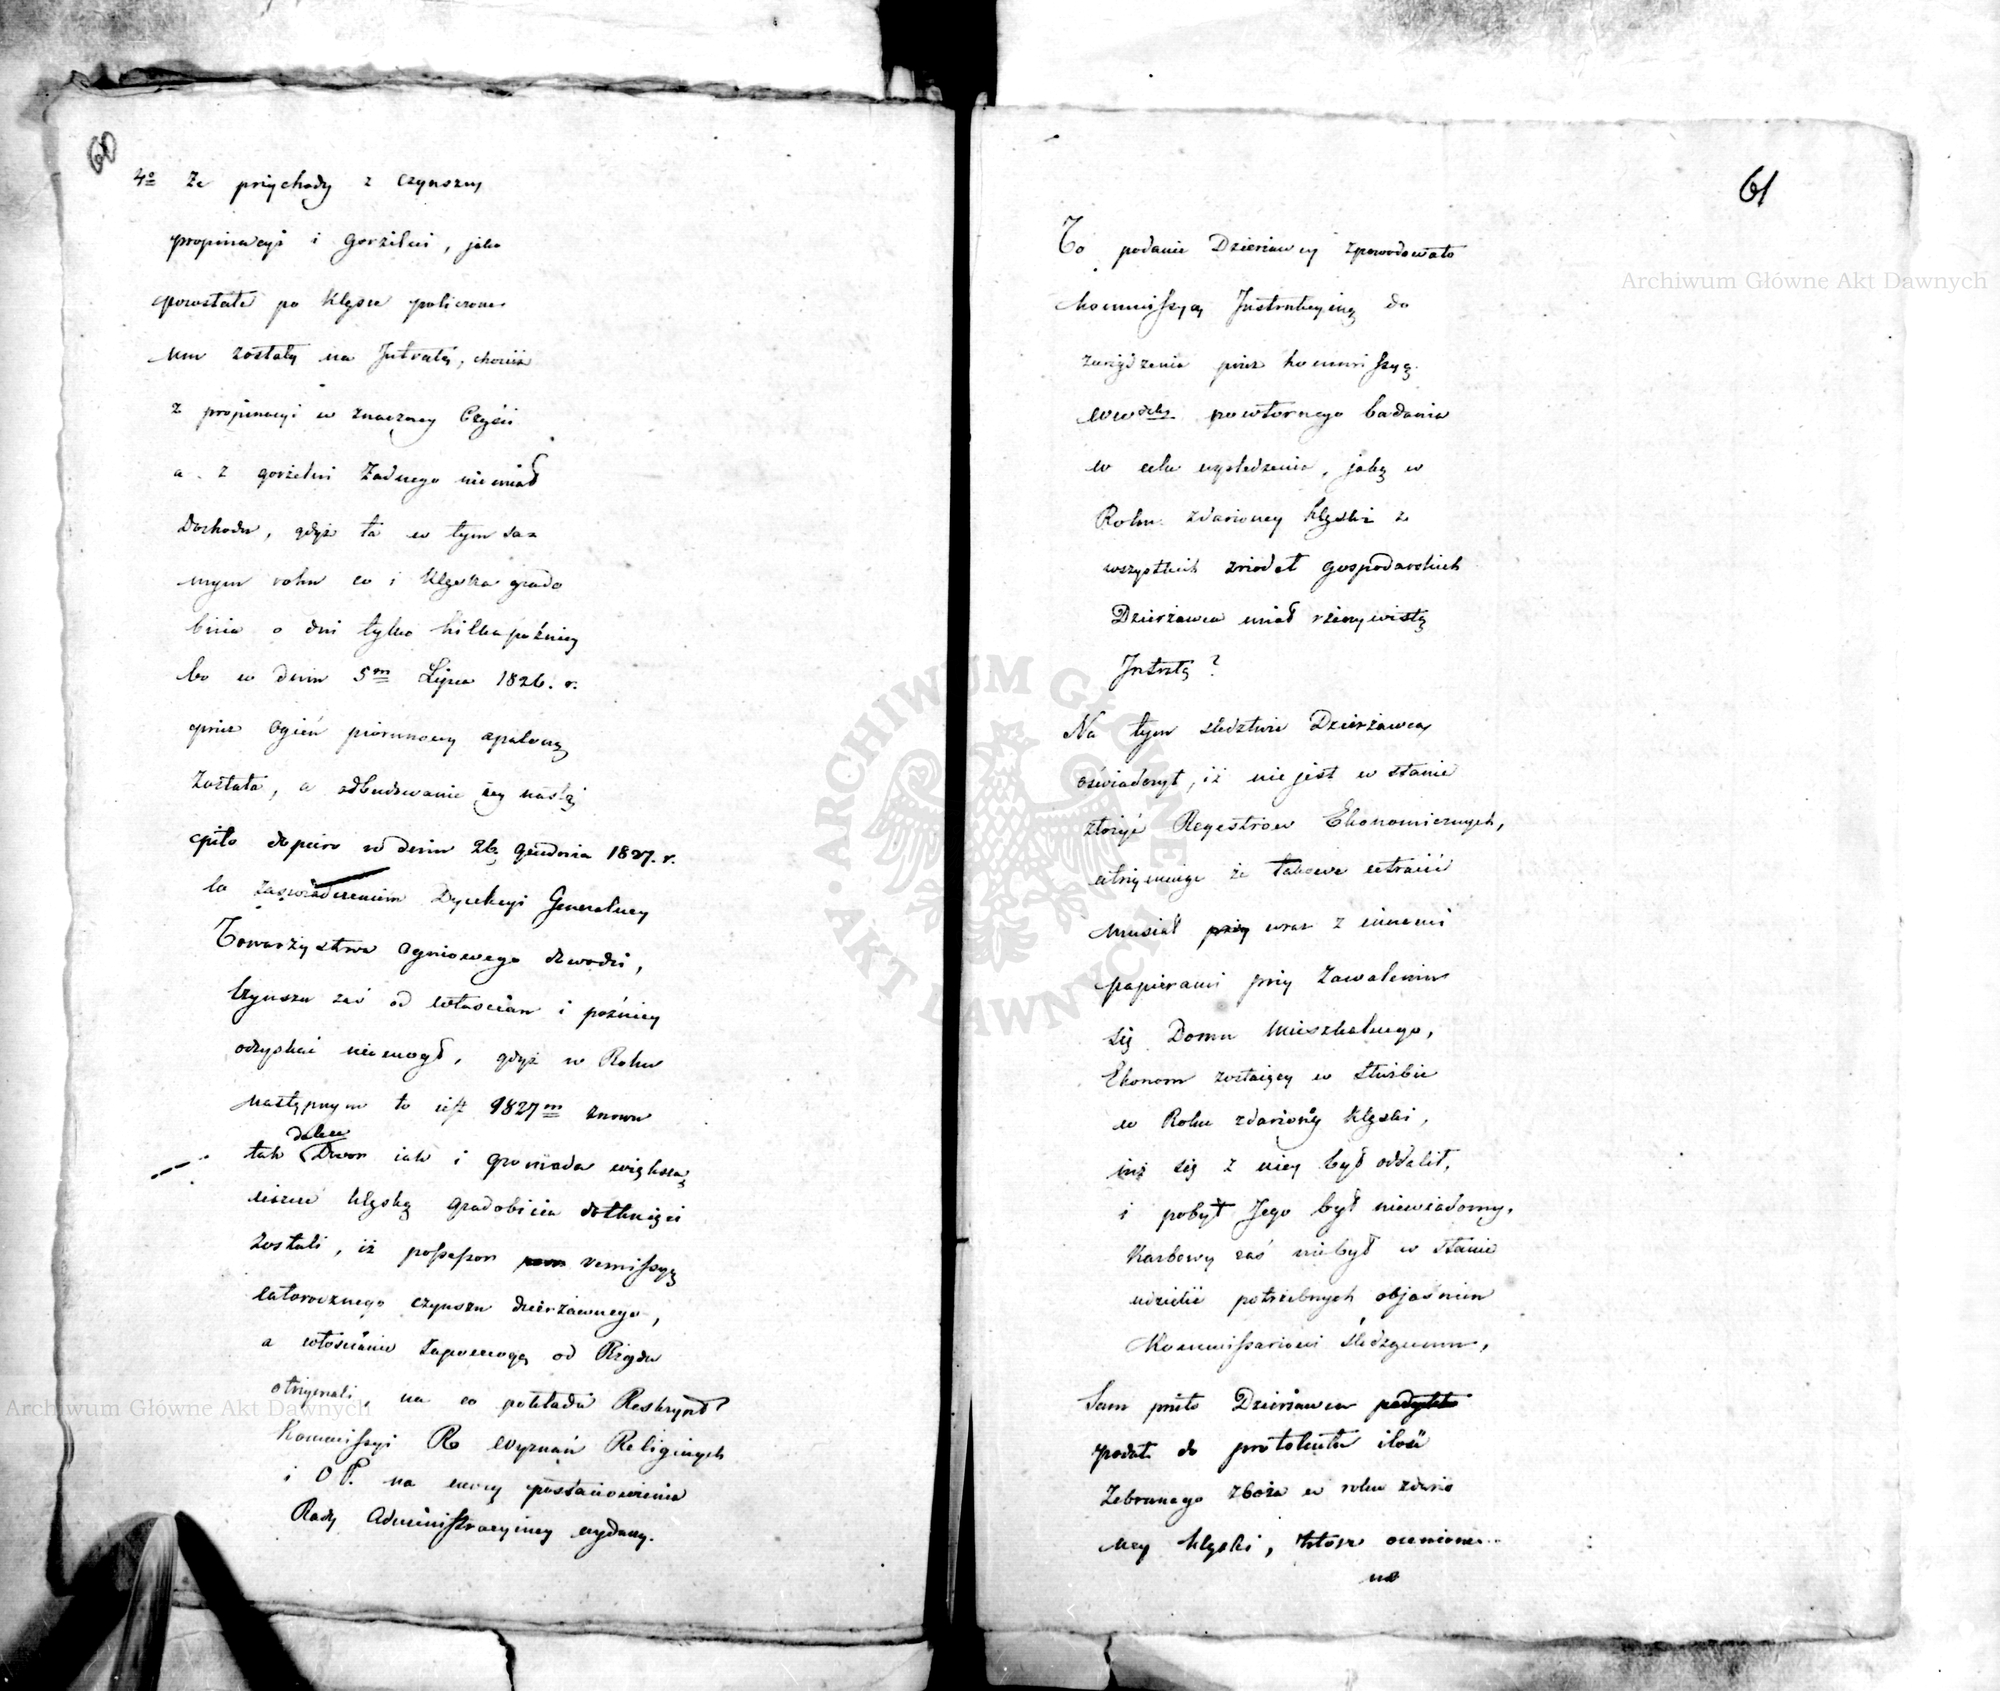 60
4o Że przychody z czynszu
propinacyi i gorzelni, jako
pozostałe po klęsce policzone
mu zostały na Intratę, chociaż
z propinacyi w znaczney Części
a z gorzelni żadnego niemiał
Dochodu, gdyż ta w tym sa=
mym roku co i klęska grado
bicia o dni tylko kilka późniey
bo w dniu 5m Lipca 1826. r.
przez Ogień piorunowy spaloną
została, a odbudowanie iey nastą
piło dopiero w dniu 26 Grudnia 1827. r.
co zaświadczeniem Dyrekcyi Generalney
Towarzystwa Ogniowego dowodzi,
Czynszu zaś od włościan i późniey
odzyskać niemógł, gdyż w Roku
następnym to iest 1827m znowu
tak Dwór iak i gromada większą
ieszcze klęską gradobicia dotknięci
zostali, iż possessor remissyą
całorocznego czynszu dzierżawnego,
a włościanie zapomogę od Rządu
otrzymali, na co pokłada Reskrypt
Kommissyi R. Wyznań Religijnych
i O P. na mocy postanowienia
Rady Administracyiney wydany.
61
To podanie Dzierżawcy spowodowało
Kommissyą Instrukcyiną do
zarządzenia przez Kommissyą
Wwdzką powtórnego badania
w celu wyśledzenia, jaką w
Roku zdarzoney klęski z
wszystkich źródeł gospodarskich
Dzierżawca miał rzeczywistą
Intratę?
Na tym śledztwie Dzierżawca
oświadczył, iż nie jest w stanie
złożyć Regestrów Ekonomicznych,
utrzymując że takowe utracić
musiał przy wraz z innemi
papierami przy zawaleniu
się Domu mieszkalnego,
Ekonom zostaiący w służbie
w Roku zdarzonéy klęski,
iuż się z niey był oddalił,
i pobyt Jego był niewiadomy,
Karbowy zaś niebył w stanie
udzielić potrzebnych objaśnień
Kommissarzowi śledzącemu,
Sam przeto Dzierżawca
podał do protokułu ilość
Zebranego zboża w roku zdarzo
ney klęski, które ocenione
na
Archiwum Główne Akt Dawnych
Archiwum Główne Akt Dawnych
ARCHIWUM GŁÓWNE AKT DAWNYCH